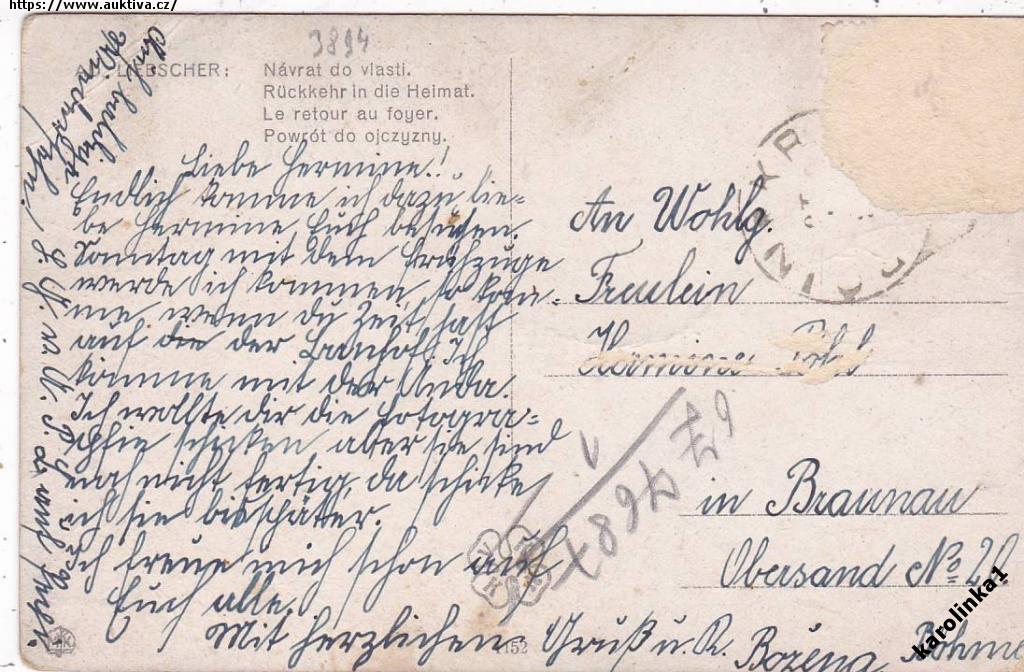 https://www.auktiva.cz/
3894
LIEBSCHER:
Návrat do vlasti.
Rückkehr in die Heimat.
Le retour au foyer.
Powrót do ojczyzny.
Liebe Hermine!
Endlich komme ich dazu lie-
be Hermine Euch besuchen.
Sonntag mit dem Frühzuge
werde ich kommen, so kom-
me, wenn du Zeit hast
auf die der Bahnhof. Ich
komme mit der Anda.
Ich wollte dir die Fotogra-
phie schicken, aber sie sind
noch nicht fertig, da schicke
ich sie bis später.
Ich freue mich schon auf
Euch alle.
Mit herzlichen Gruß u. K. Božena Böhme
An Wohlg.
Freulein
Hermine
in Braunau
Obersand No 20.
67468
152
karolinka1